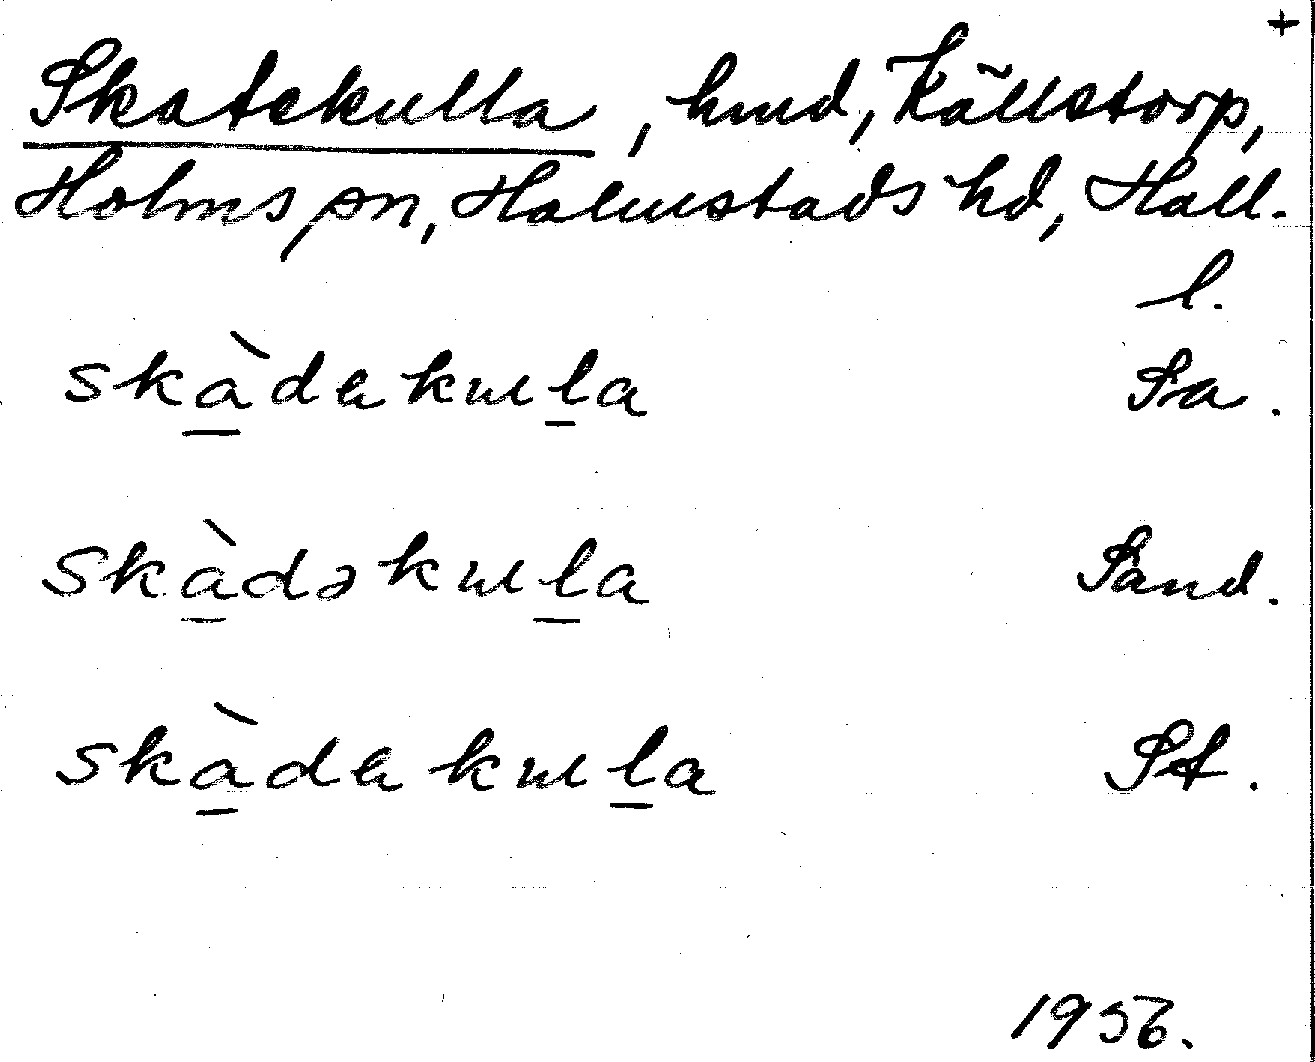 +
Skatekulla, hmd, Källstorp,
Holms sn, Halmstads hd, Hall.
l.
skàdekɯla Sa.
skàdəkɯla Sand.
skàdekɯla St.
1956.